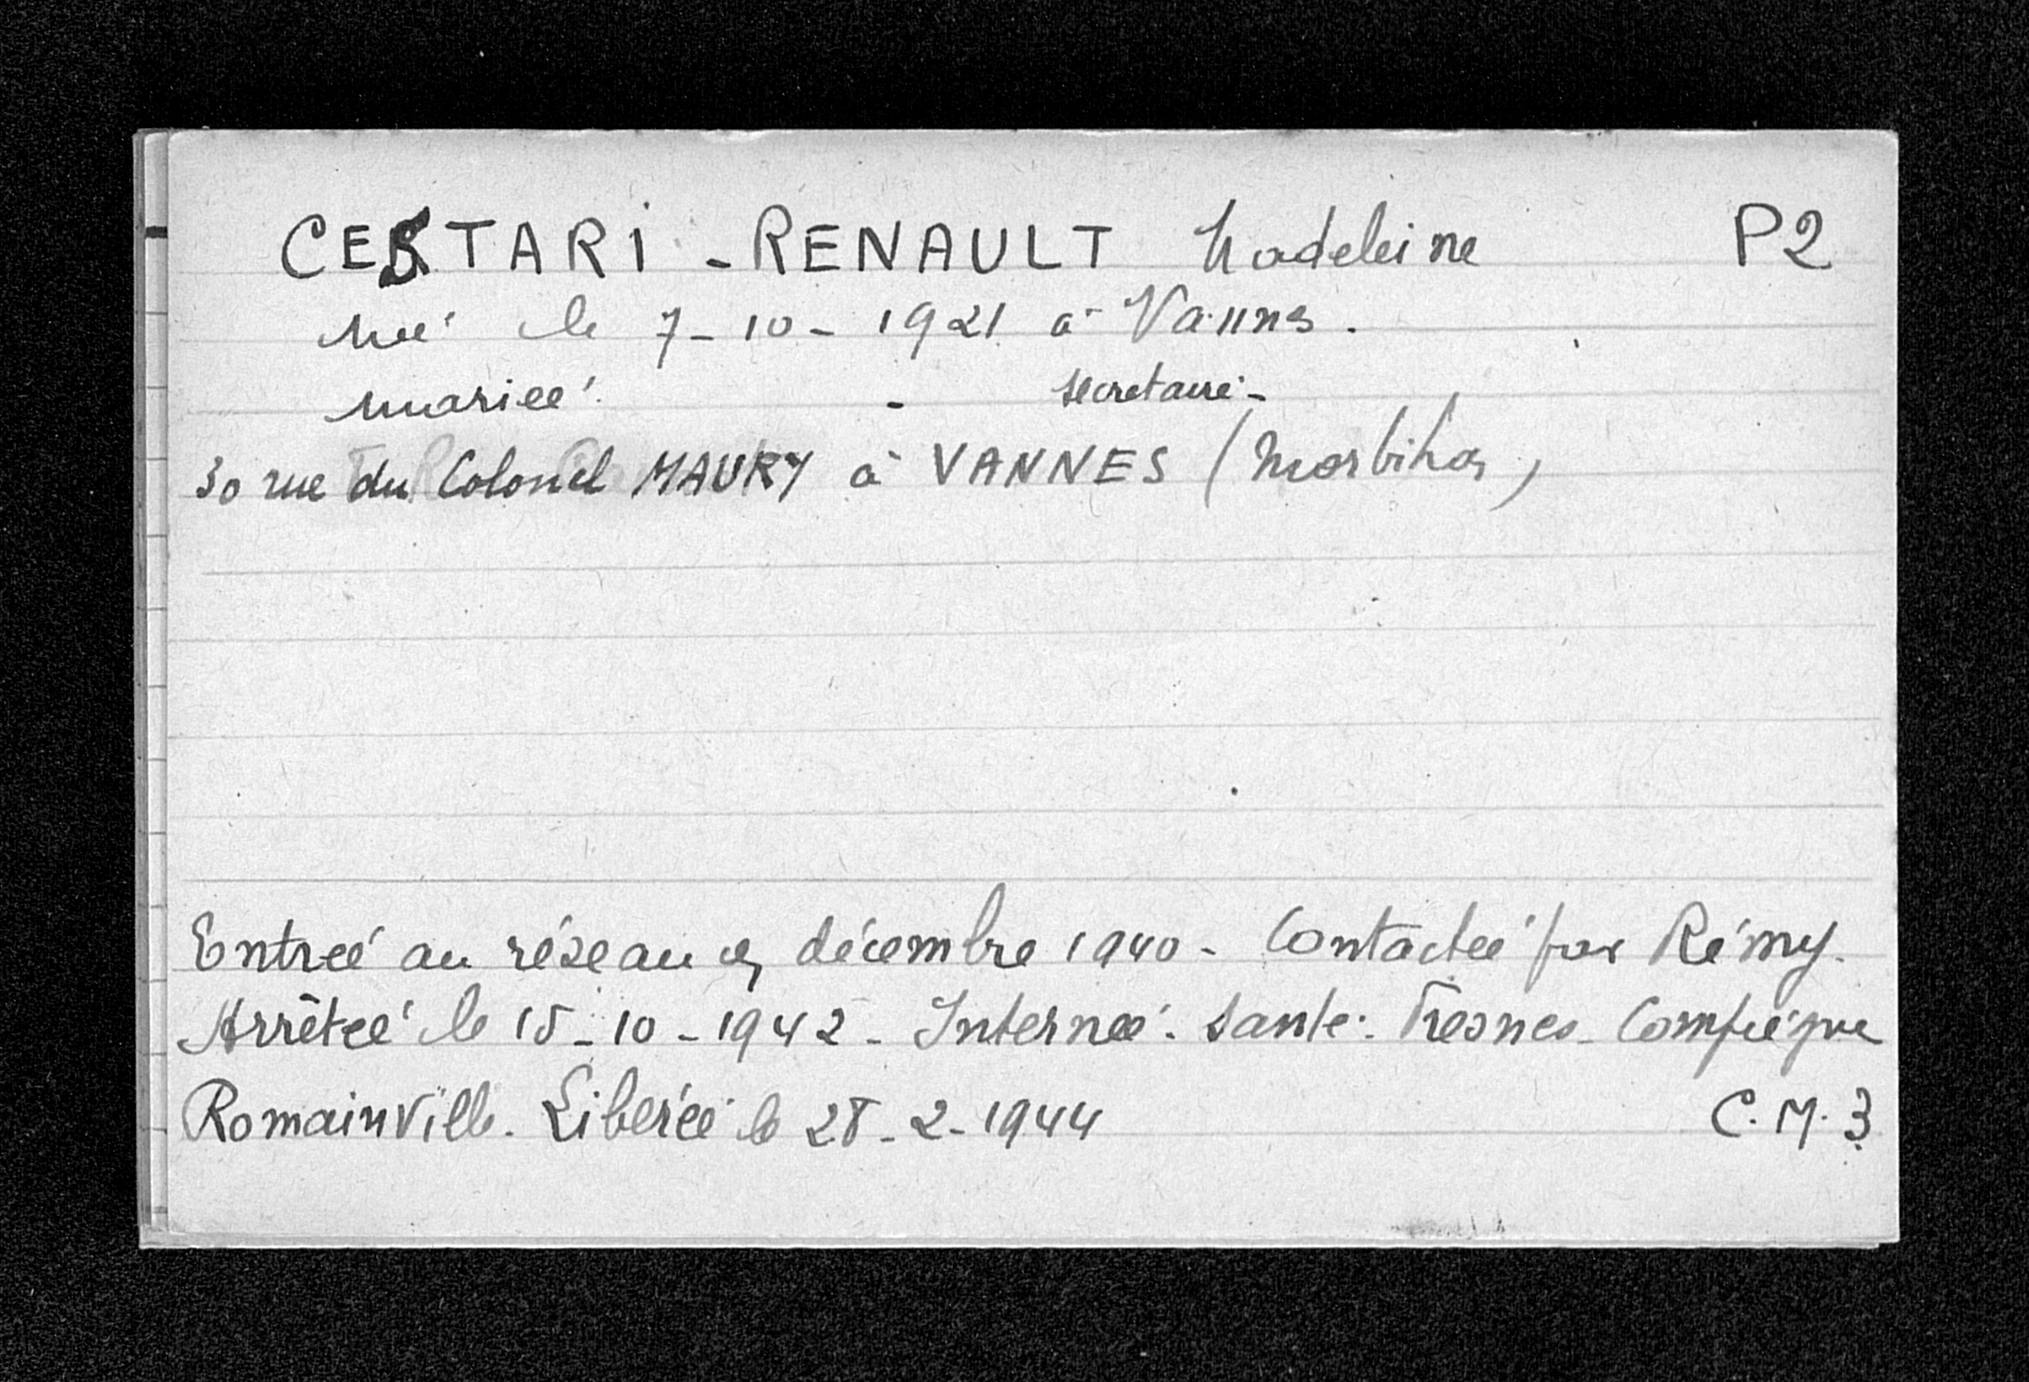 CESTARI - RENAULT Madeleine P2
née le 7-10-1921 à Vannes.
mariée - secrétaire -
30 rue du Colonel MAURY à VANNES (Morbihan)
Entrée au réseau en décembre 1940 - Contactée par Rémy.
Arrêtée le 15-10-1942 - Internée. Santé. Fresnes - Compiègne
Romainville. Libérée le 28-2-1944 C.M.3